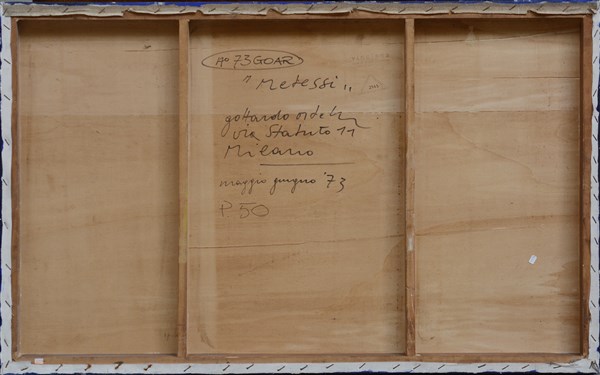 A° 73 GOAR
" Metessi "
gottardo ortelli
via Statuto 11
Milano
maggio giugno '73
P 50